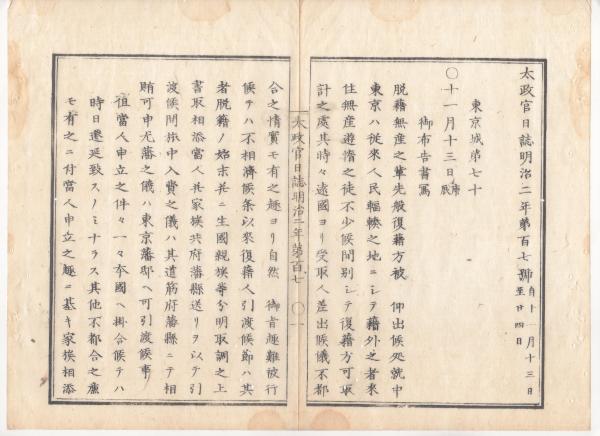 太政官日誌明治二年第百七號 自十一月十三日
至廿四日
東京城第七十
〇十一月十三日庚辰
御布告書寫
脱籍無産之輩先般復籍方被 仰出候処就中
東京ハ従来人民輻輳之地ニシテ籍外之者来
住無産遊惰之徒不少候間別シテ復籍方可取
計之處其時々遠國ヨリ受取人差出候儀不都
合之情實モ有之趣ヨリ自然 御旨趣難被行
候テハ不相濟候条以来復籍人引渡候節ハ其
者脱籍ノ始末并ニ生國親族等分明取調之上
書取相添當人并家族共府藩縣送リヲ以テ引
渡候間旅中入費之儀ハ其道筋府藩縣ニテ相
賄可申尤藩之儀ハ東京藩邸ヘ可引渡候事
但當人申立之件々一々本國ヘ掛合候テハ
時日遷延致スノミナラス其他不都合之廉
モ有之ニ付當人申立之趣ニ基キ家族相添
太政官日誌明治二年第百七 〇一